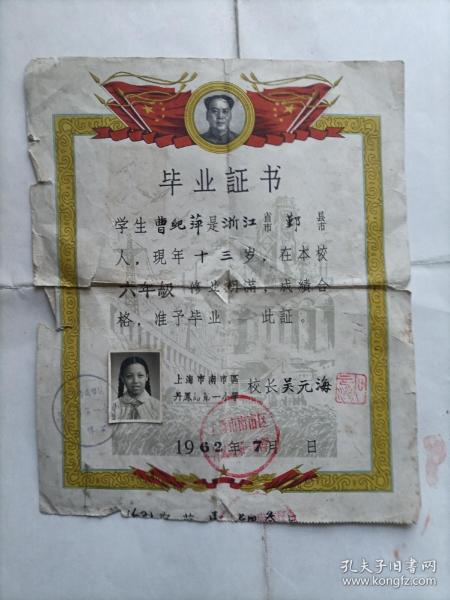 毕业証书
学生曹纪萍是浙江省市鄞县市
人，现年十三岁，在本校
六年级修业期满，成績合
格，准予毕业。此証。
上海市南市區
丹鳳路第一小學
校长吴元海
上海市南市区
1962年7月 日
孔夫子旧书网
www.kongfz.com